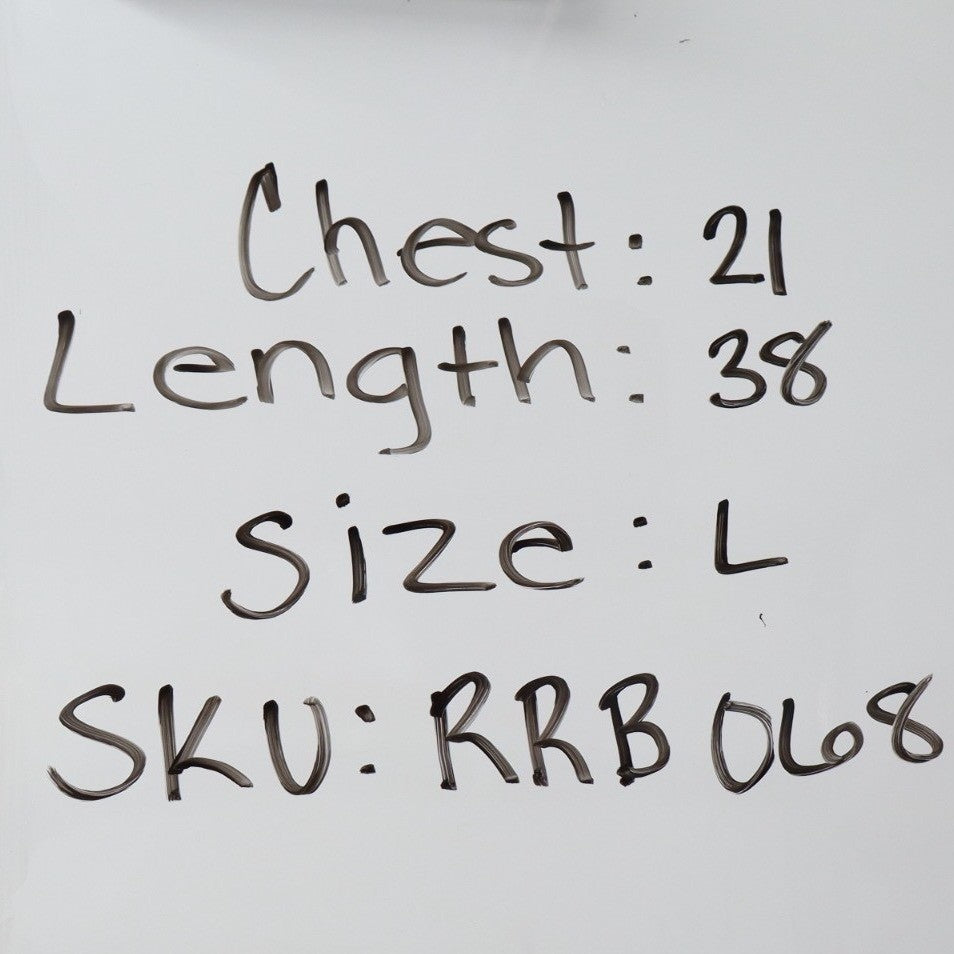 Chest: 21
Length: 38
Size: L
SKU: RRB068